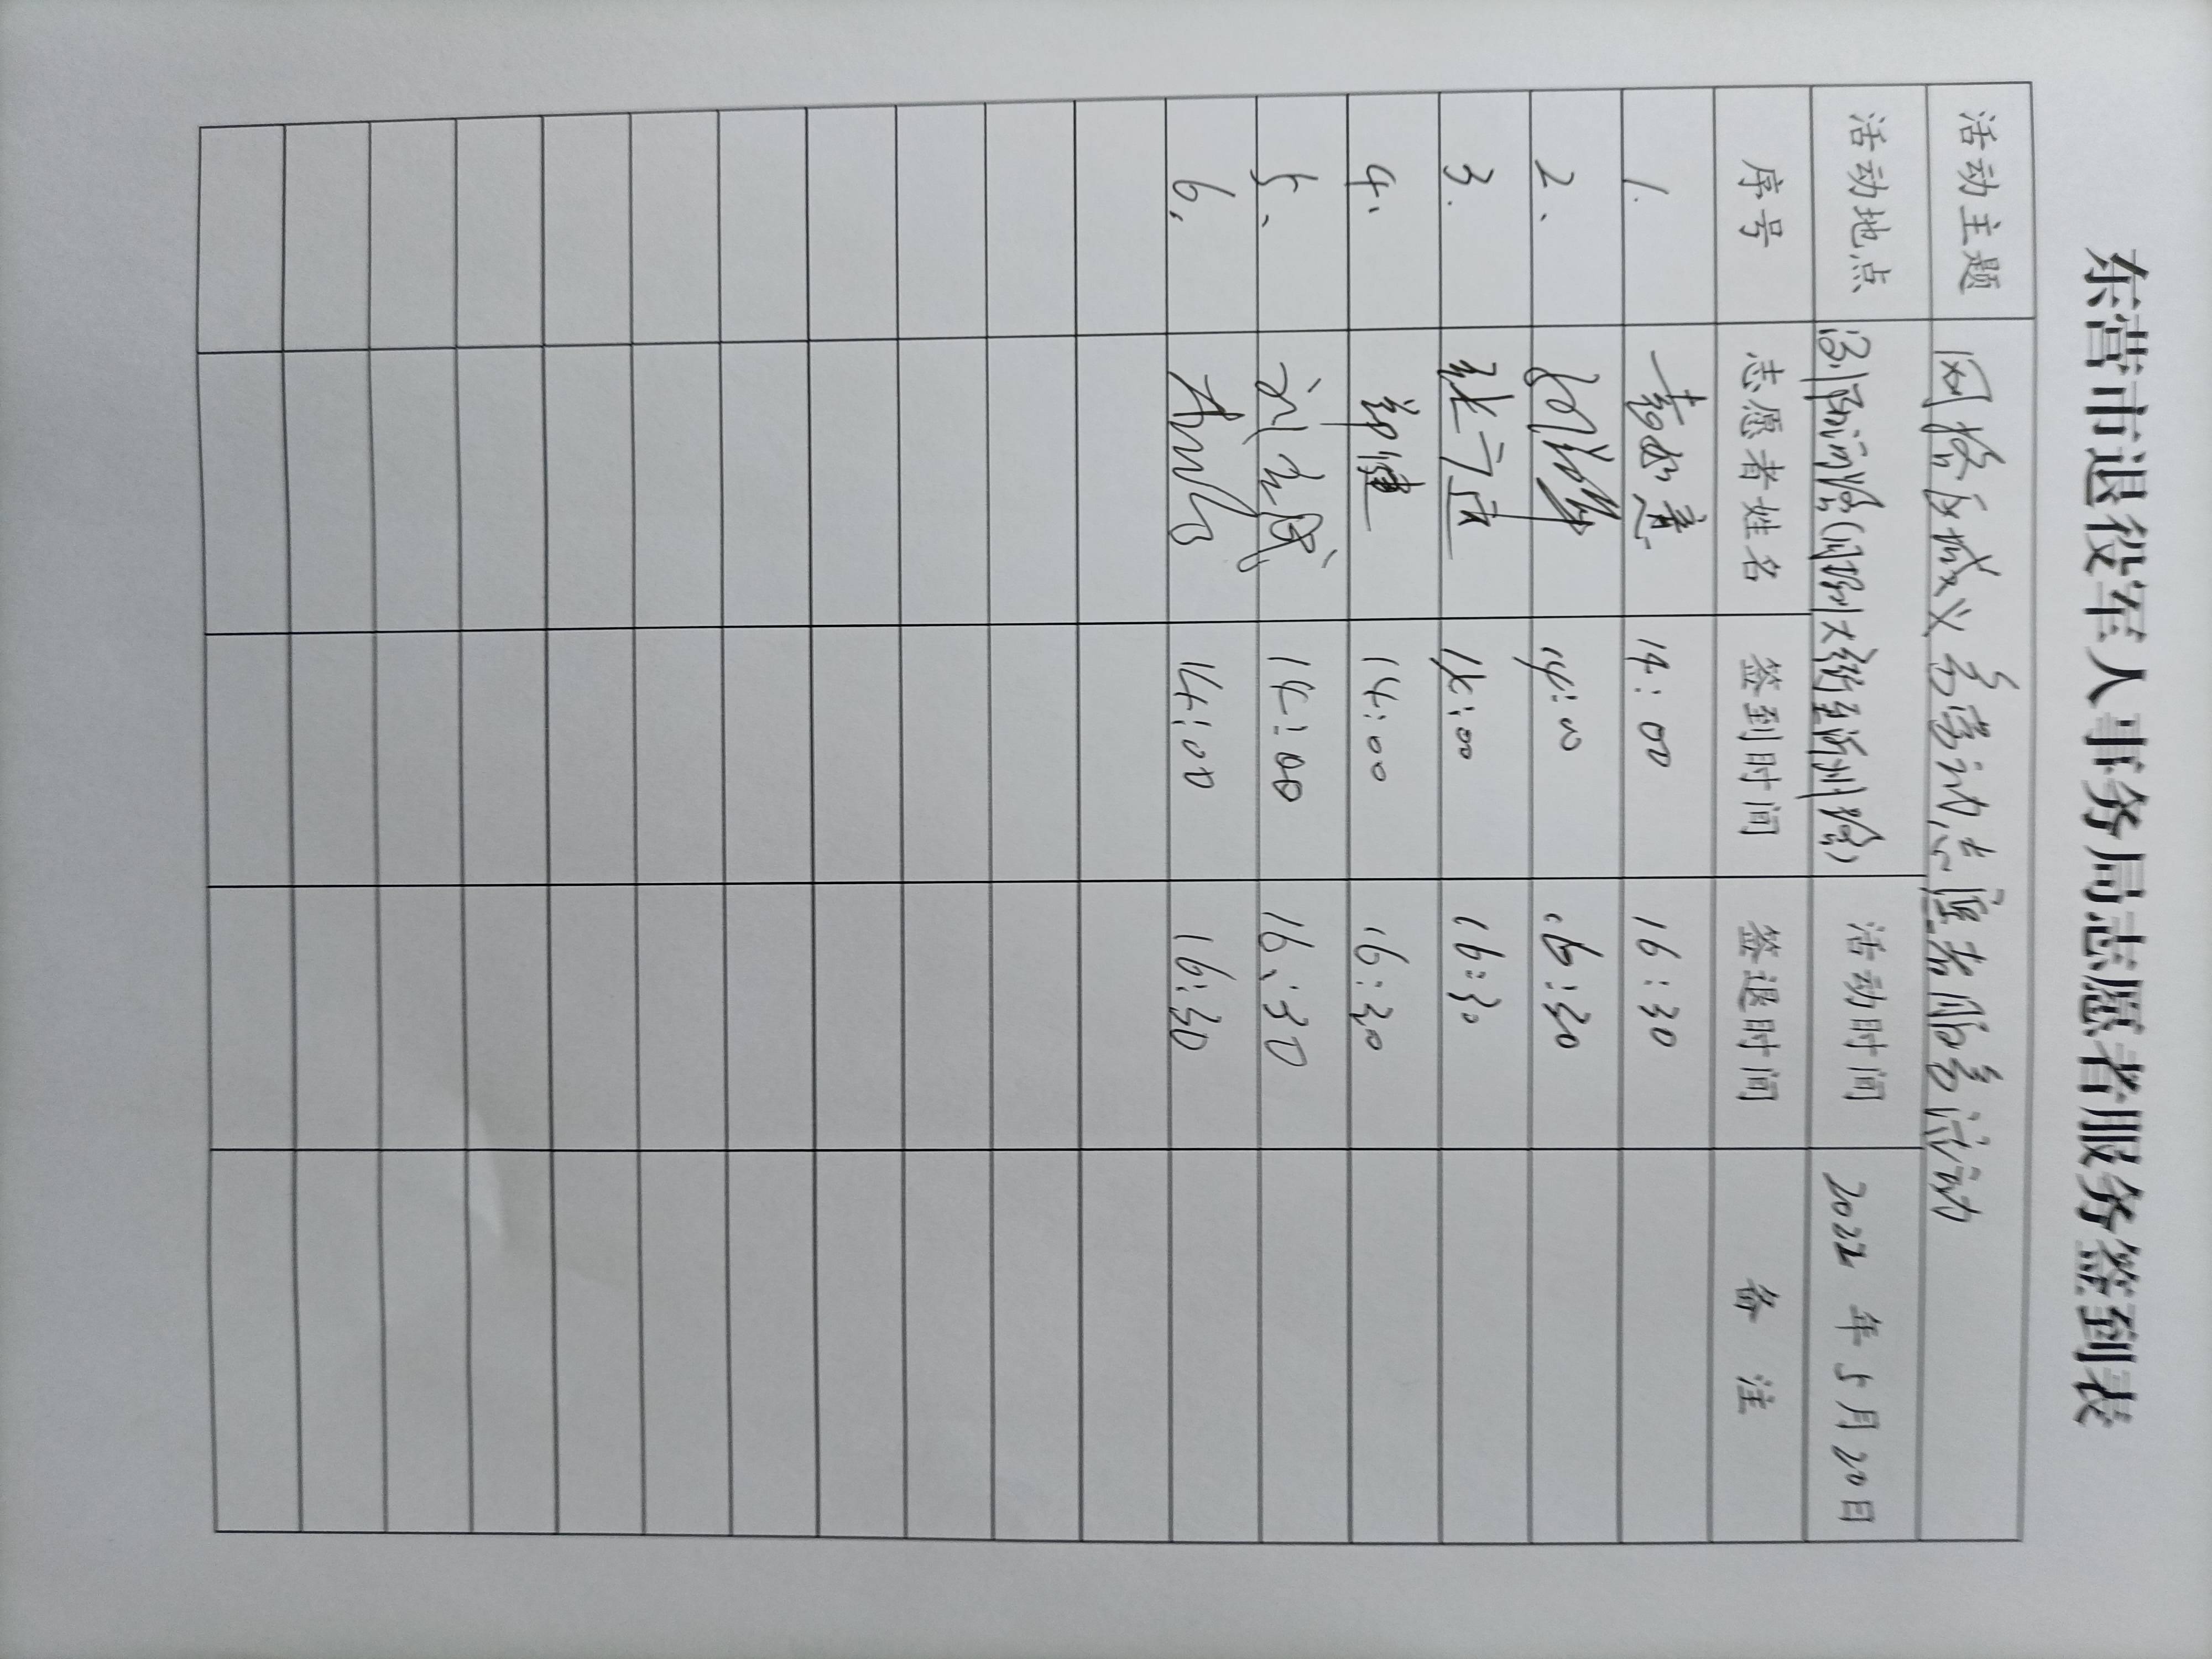 东营市退役军人事务局志愿者服务签到表
活动主题 网格区域义务劳动志愿者服务活动
活动地点 路(大街至沂州路) 活动时间 2022年5月20日
序号 志愿者姓名 签到时间 签退时间 备注
1. 14:00 16:30
2、 14:00 16:30
3. 14:00 16:30
4、 郭健 14:00 16:30
5、 刘志成 14:00 16:30
6, 14:00 16:30